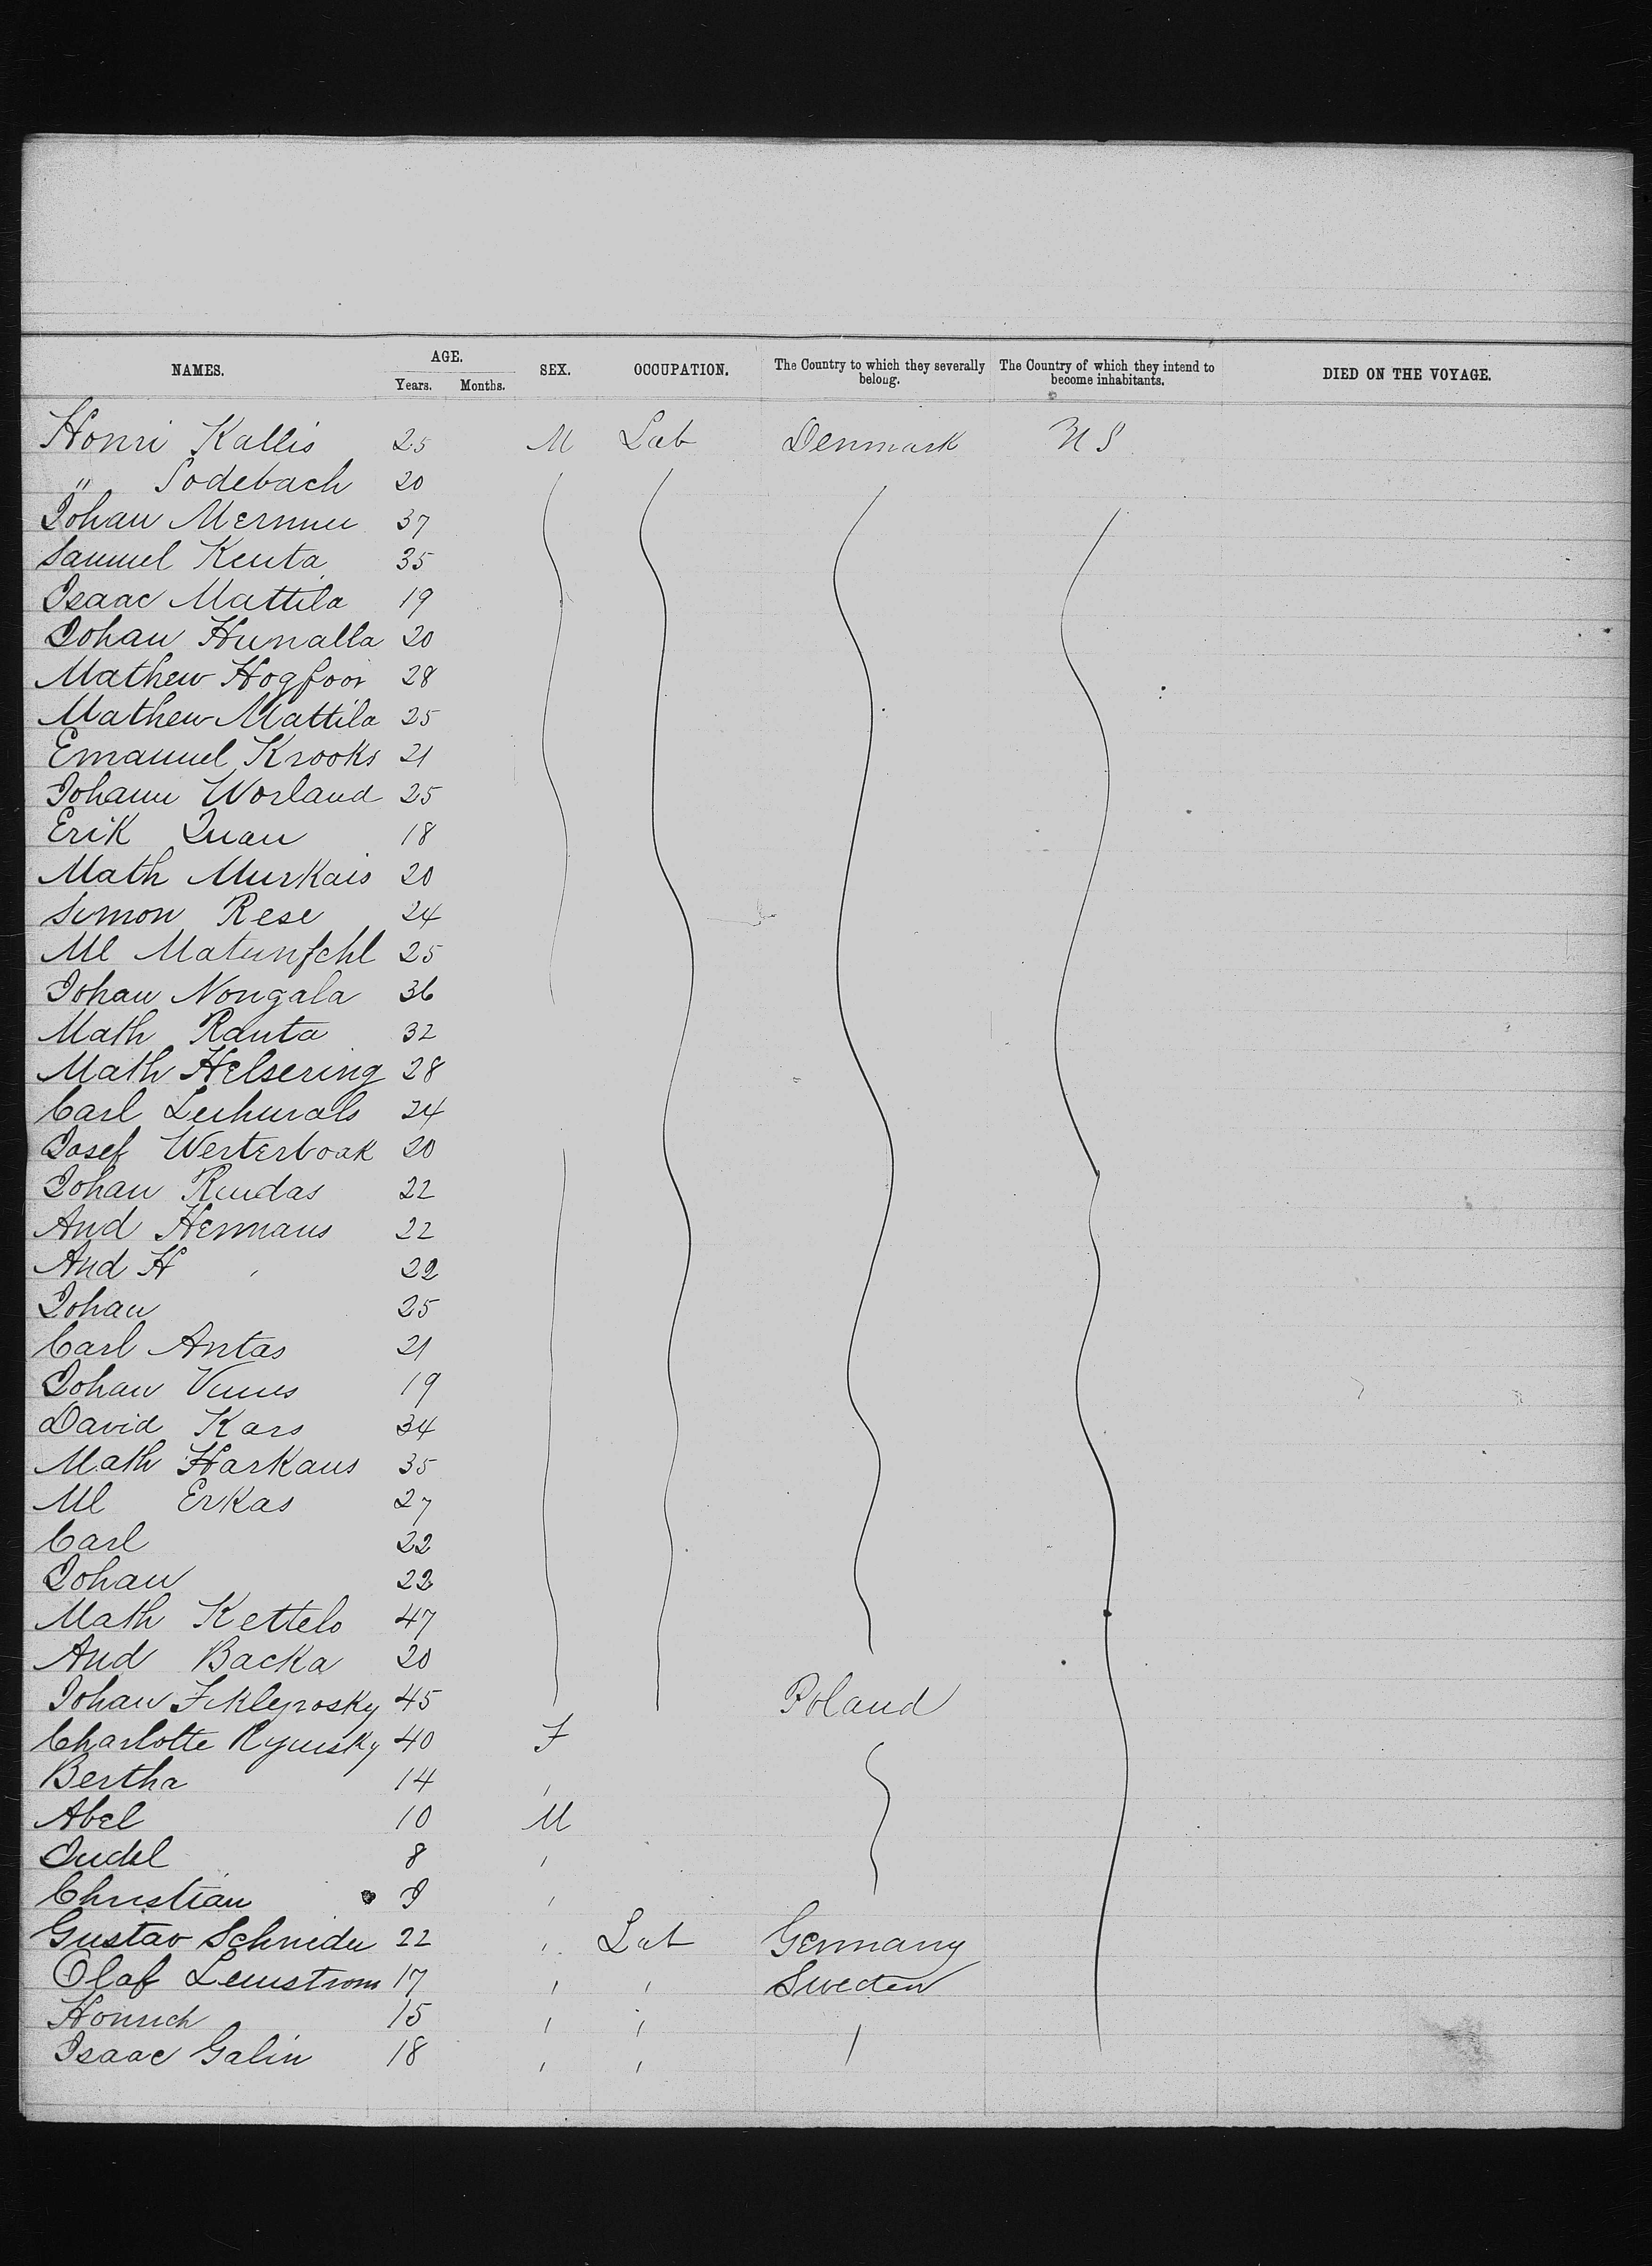 NAMES. AGE. SEX. OCCUPATION. The Country to which they severally belong. The Country of which they intend to become inhabitants. DIED ON THE VOYAGE.
Years. Months.
Honri Kallis 25 M Lab Denmark U S
" Sodebach 20
Johan 37
Samuel Kenta 35
Isaac Mattila 19
Johan Hunalla 20
Mathew Hogfoor 28
Mathew Mattila 25
Emanuel Krooks 21
Johann Worland 25
Erik Quan 18
Math Murkais 20
Simon Rese 24
Ml 25
Johan Nongala 36
Math Ranta 32
Math Helsering 28
Carl 24
Josef Westerboak 20
Johan Rendas 22
And Hermans 22
And H 22
Johan 25
Carl Antas 21
Johan 19
David Kars 34
Math Harkaus 35
Ml Erkas 27
Carl 22
Johan 22
Math Kettelo 47
And Backa 20
Johan 45 Poland
Charlotte 40 F
Bertha 14 "
Abel 10 M
Judel 8 "
Christian 9 "
Gustav Schneider 22 " Lab Germany
Olaf Lemstrom 17 " " Sweden
Honrich 15 " "
Isaac Galin 18 " " "